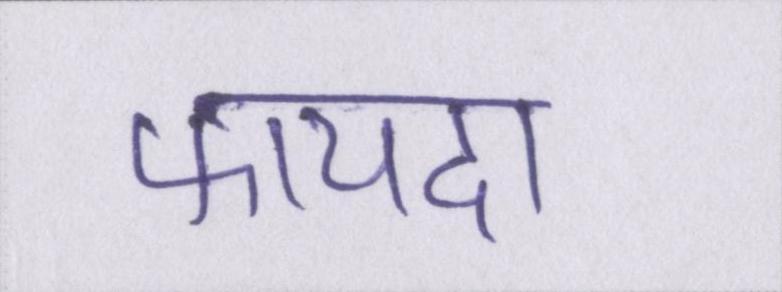 फायदा